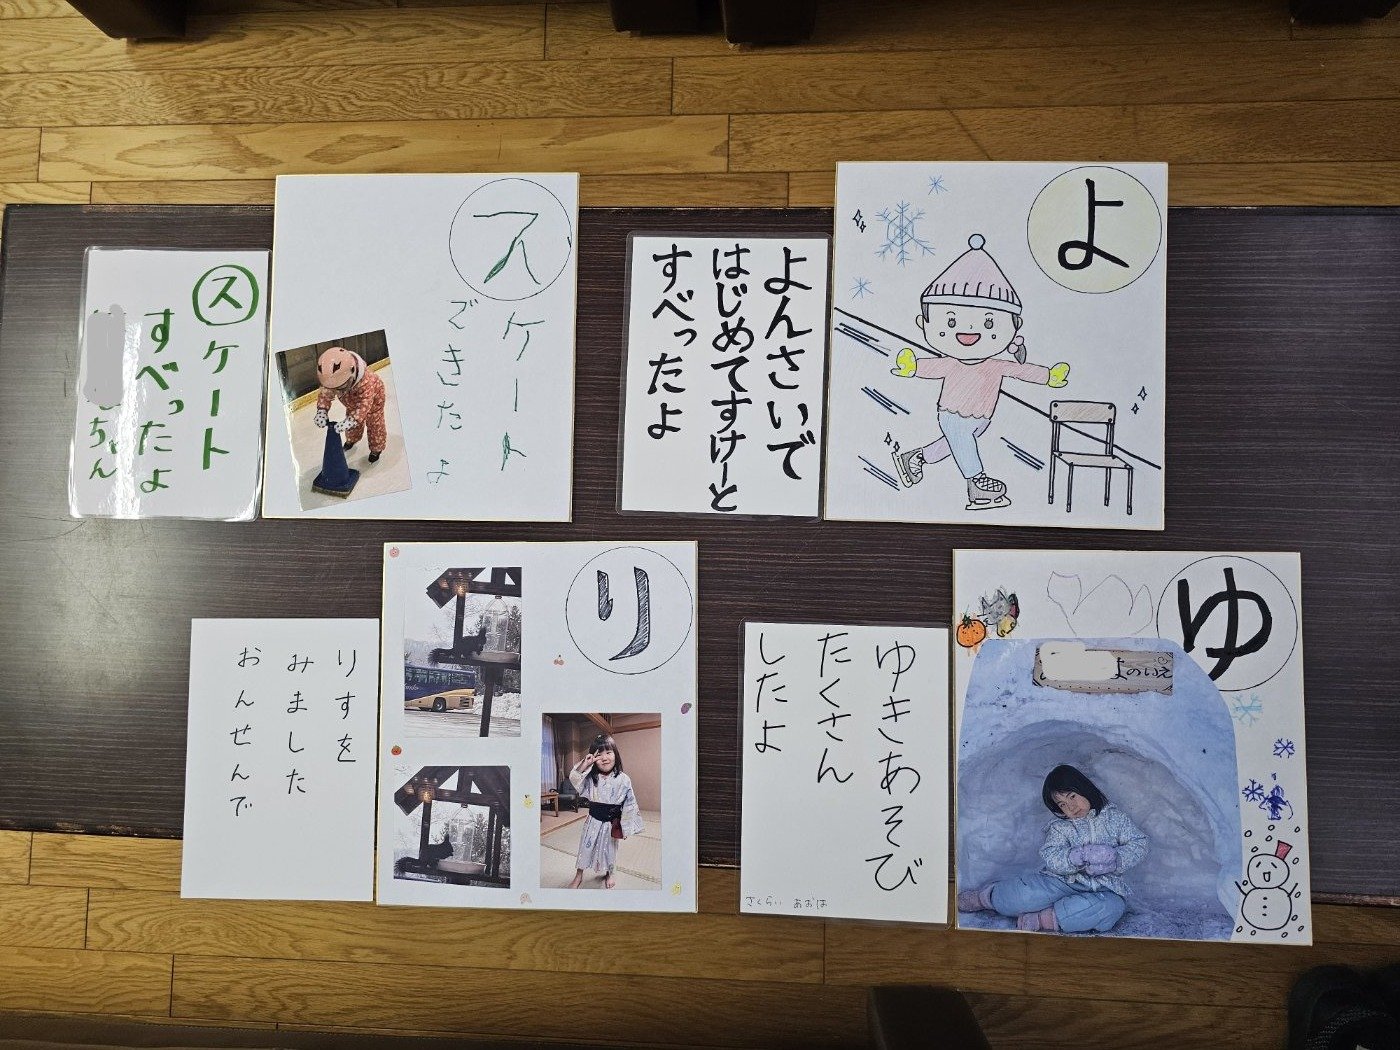 よ
よんさいで
はじめてすけーと
すべったよ
ス
スケート
できたよ
スケート
すべったよ
ちゃん
ゆ
よのいえ
ゆきあそび
たくさん
したよ
さくらい あおは
り
りすを
みました
おんせんで